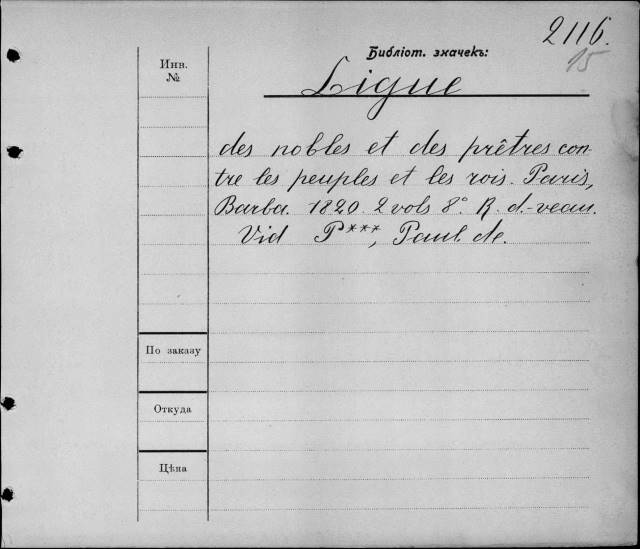 2116.
15
Библіот. значекъ:
Инв.
№
Ligue
des nobles et des prêtres con-
tre les peuples et les rois. Paris,
Barba. 1820 2 vols 8° R. d.-veau.
Vid P***, Paul de.
По заказу
Откуда
Цѣна